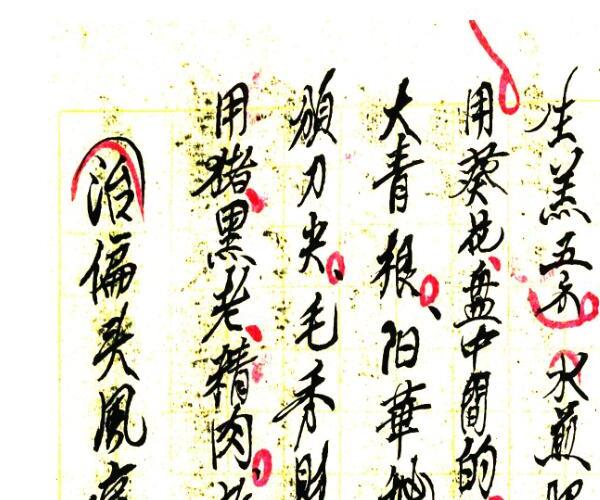 生羌五分 水煎
用葵花盘中間的
大青根、阳華
须刀尖、毛禾
用猪黑老精肉
治偏头風